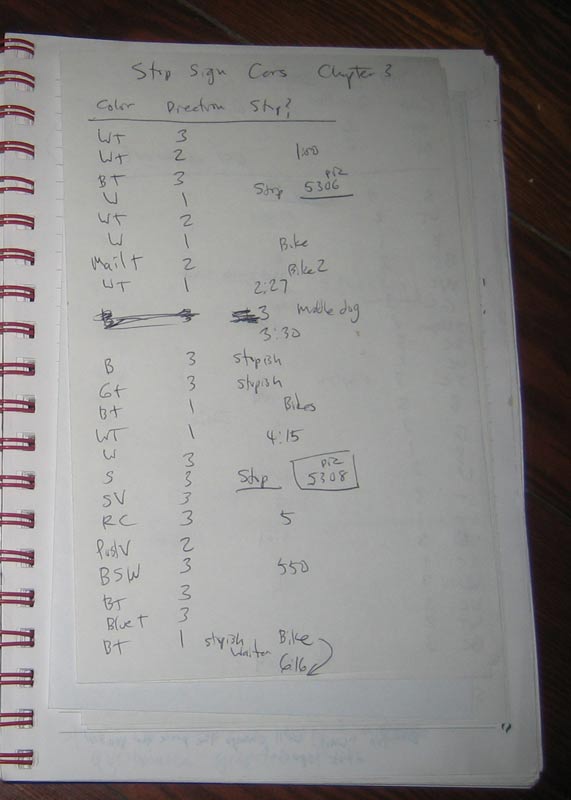 Stop Sign Cars Chapter 3
Color Direction Stop?
WT 3
WT 2 1:00
BT 3 Stop pic 5306
W 1
WT 2
W 1 Bike
Mail t 2 Bike 2
WT 1 2:27
3
3:30
B 3 stopish
Gt 3 stopish
Bt 1 Bikes
WT 1 4:15
W 3
S 3 Stop pic 5308
SV 3
RC 3 5
2
BSW 3 550
BT 3
Blue t 3
BT 1 stopish Bike
6:16